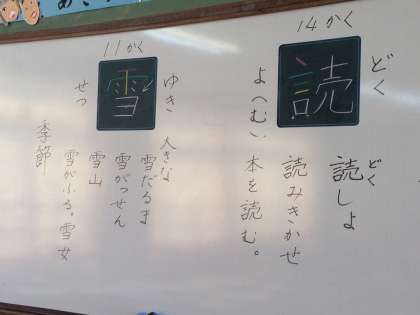 14かく
読
どく
よ(む)
どく
読しょ
読みきかせ
本を読む。
11かく
雪
ゆき
せつ
大きな
雪だるま
雪がっせん
雪山
雪がふる。雪女
季節